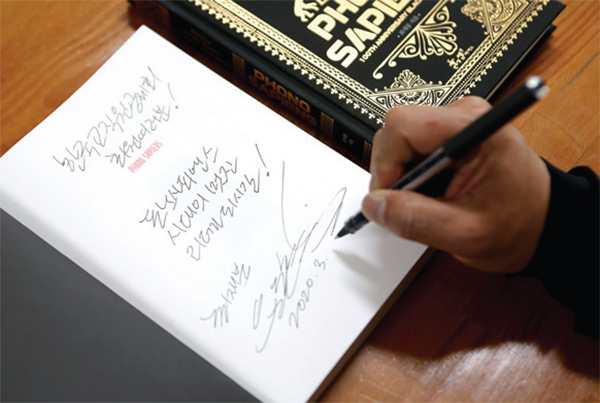 PHONO
SAPIENS
100TH ANNIVERSARY
PHONO
SAPIENS
한국교직원공제회
회원여러분!
PHONO SAPIENS
포노사피엔스
시대의
리더가되시길!
최재붕
2020. 3.